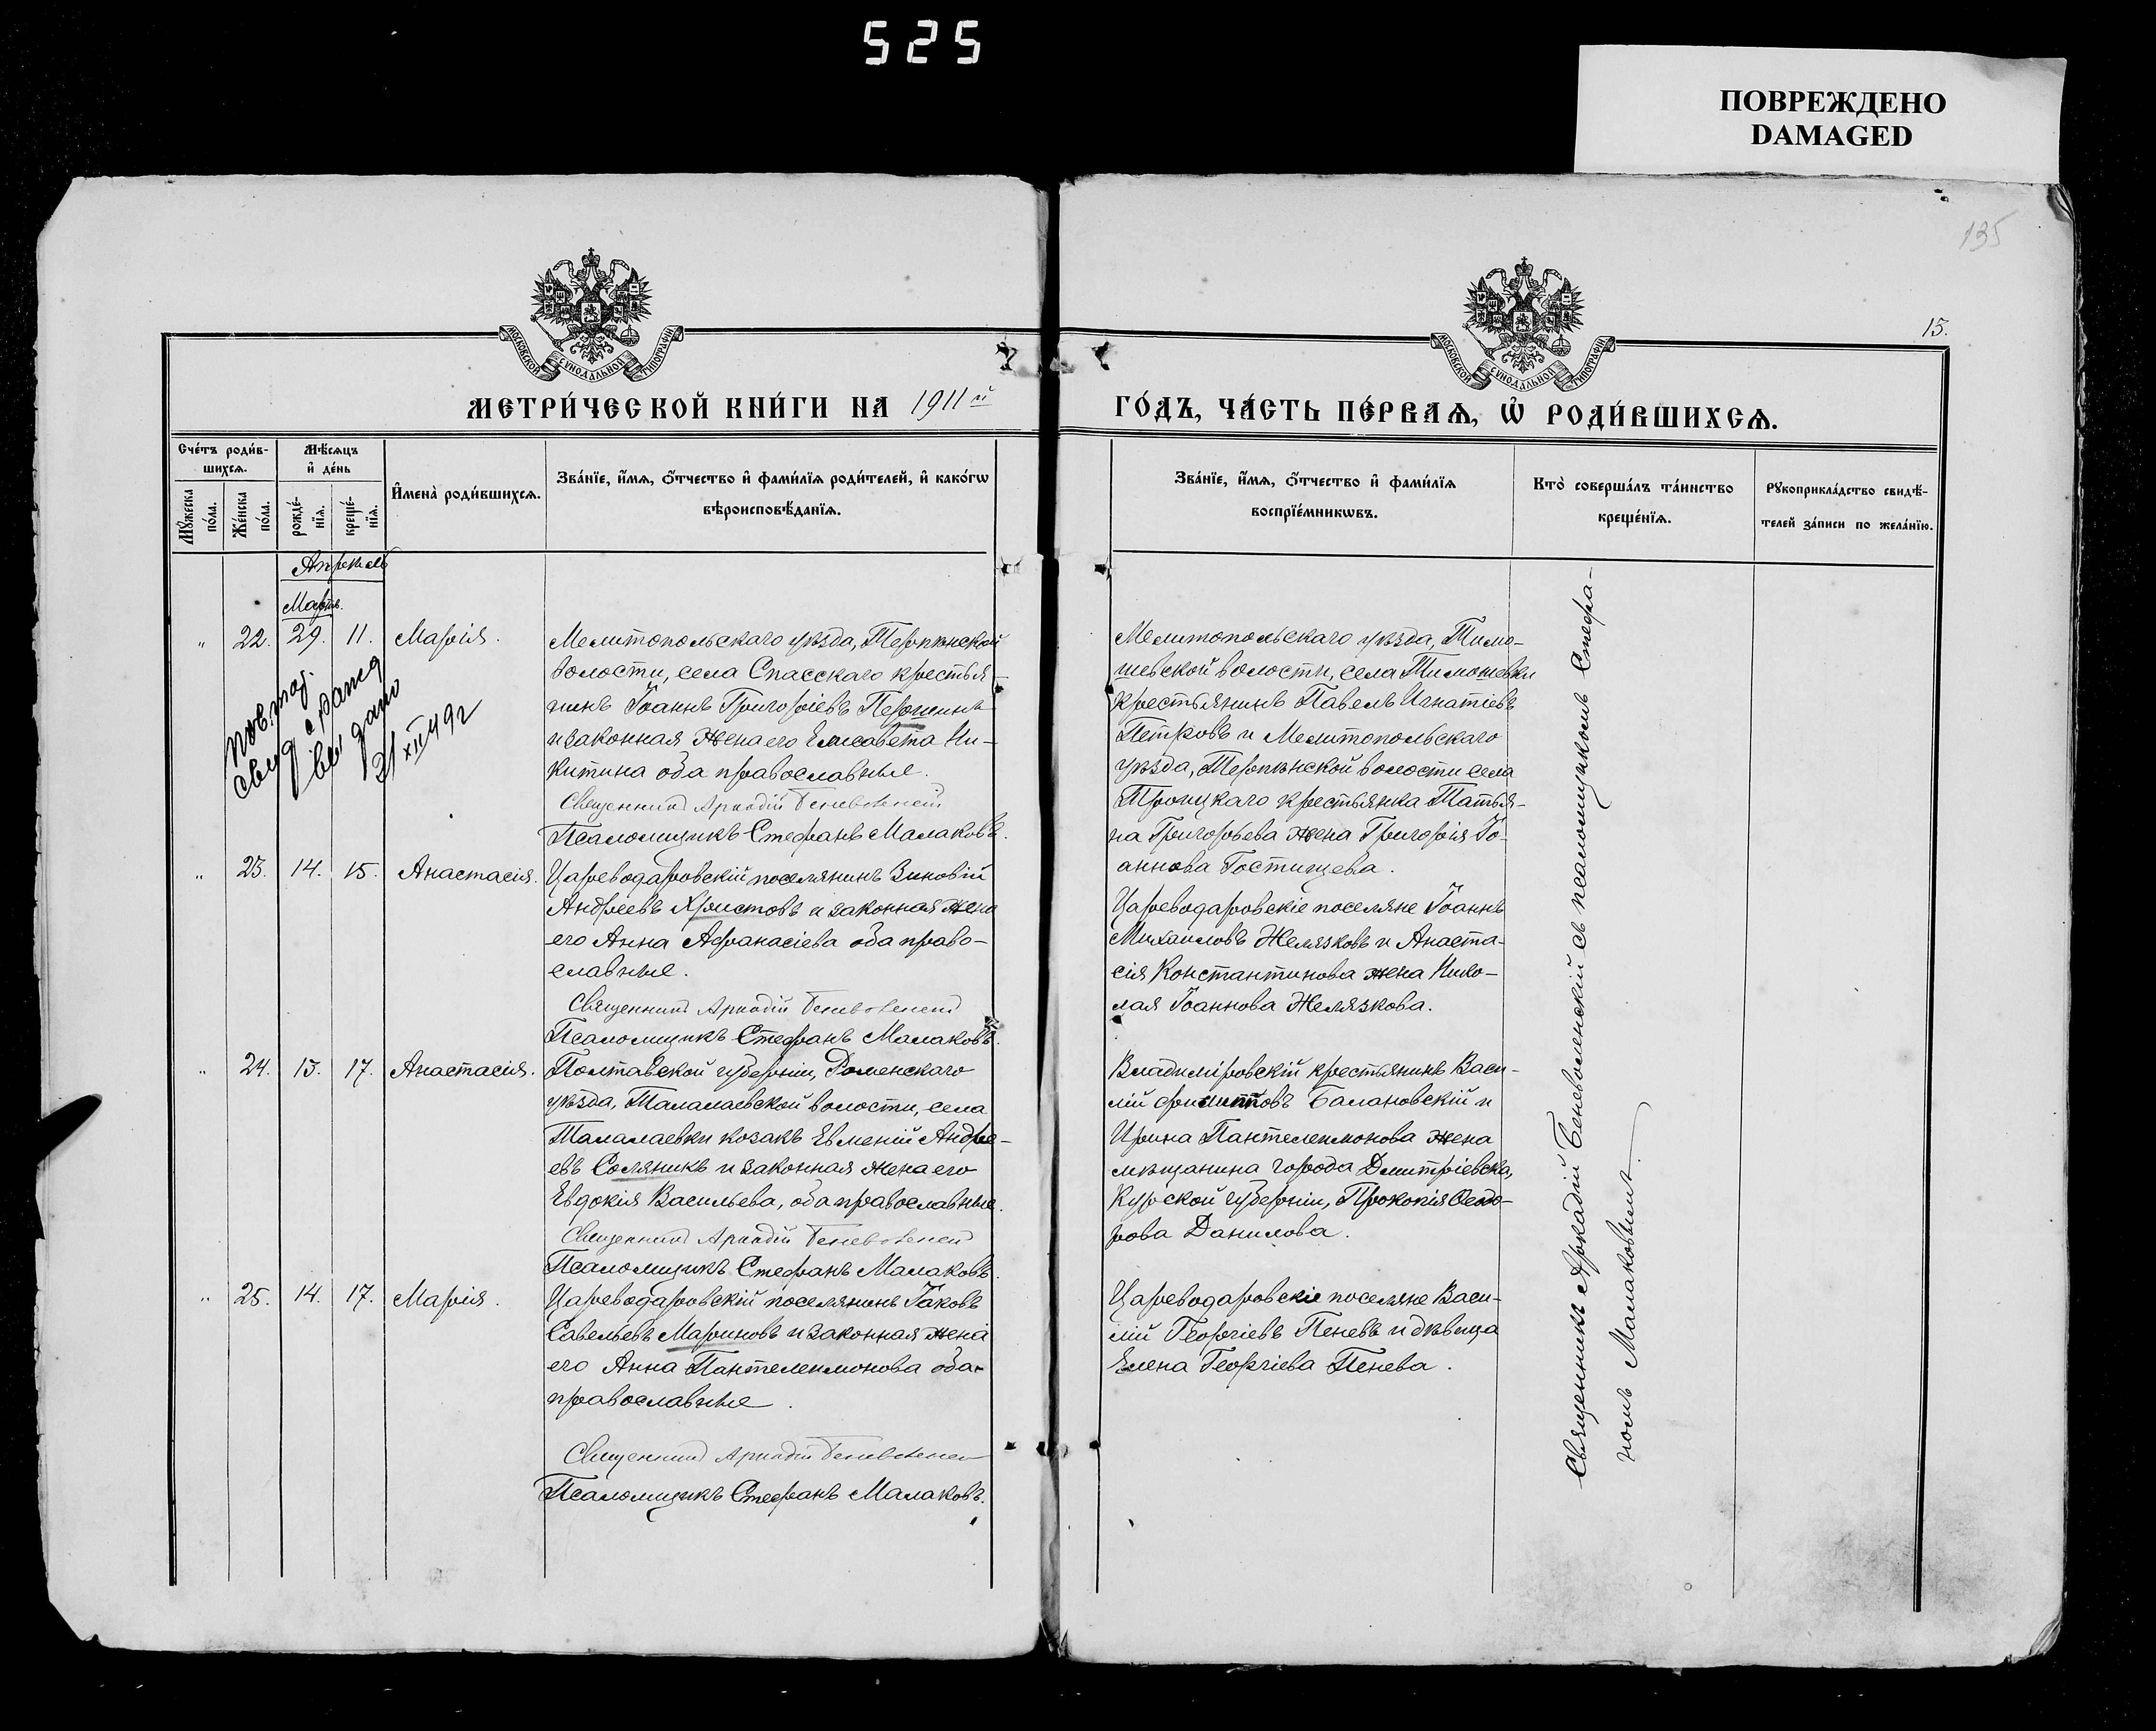 525
ПОВРЕЖДЕНО
DAMAGED
135
15.
МОСКОВСКОЙ СѴНОДАЛЬНОЙ ТИПОГРАФІИ
МОСКОВСКОЙ СѴНОДАЛЬНОЙ ТИПОГРАФІИ
МЕТРИ́ЧЕСКОЙ КНИ́ГИ НА 1911й
ГО́ДЪ, ЧА́СТЬ ПЕ́РВАѦ, Ѡ҆ РОДИ́ВШИХСѦ.
Сче́тъ роди́в-
шихсѧ.
Мꙋ́жеска
по́ла.
Же́нска
по́ла.
Мѣ́сѧцъ
и҆ де́нь
рожде́-
нїѧ.
креще́-
нїѧ.
И҆мена̀ роди́вшихсѧ.
Зва́нїе, и҆́мѧ, ѻ҆́тчество и҆ фами́лїѧ роди́телей, и҆ како́гѡ
вѣроисповѣ́данїѧ.
Зва́нїе, и҆́мѧ, ѻ҆́тчество и҆ фами́лїѧ
воспрїе́мникѡвъ.
Кто̀ соверша́лъ та́инство
креще́нїѧ.
Рꙋкоприкла́дство свидѣ́-
телей за́писи по жела́нїю.
Апрель
Мартъ.
" 22. 29. 11. Марія.
Мелитопольскаго уѣзда, Терпѣнской
волости, села Спасскаго крестья-
нинъ Іоаннъ Григоріевъ Першинъ
и законная жена его Елисавета Ни-
китина оба православные.
Священникъ Аркадій Беневоленскій
Псаломщикъ Стефанъ Малаковъ.
Мелитопольскаго уѣзда, Тимо-
шевской волости, села Тимошевки
крестьянинъ Павелъ Игнатіевъ
Петровъ и Мелитопольскаго
уѣзда, Терпѣнской волости села
Троицкаго крестьянка Татья-
на Григорьева жена Григорія Іо-
аннова Гостищева.
повтор.
свид
выдано
21 XII 49г
" 23. 14. 15. Анастасія.
Цареводаровскій поселянинъ Зиновій
Андреевъ Христовъ и законная жена
его Анна Афанасіева оба право-
славные.
Священникъ Аркадій Беневоленскій
Псаломщикъ Стефанъ Малаковъ.
Цареводаровскіе поселяне Іоаннъ
Михаиловъ Желязковъ и Анаста-
сія Константинова жена Нико-
лая Іоаннова Желязкова.
" 24. 15. 17. Анастасія.
Полтавской губерніи, Роменскаго
уѣзда, Талалаевской волости, села
Талалаевки козакъ Евменій Андре-
евъ Соляникъ и законная жена его
Евдокія Васильева, оба православные.
Священникъ Аркадій Беневоленскій
Псаломщикъ Стефанъ Малаковъ.
Владиміровскій крестьянинъ Васи-
лій Филипповъ Балановскій и
Ирина Пантелеимонова жена
мѣщанина города Дмитріевска,
Курской губерніи, Прокопія Ѳеодо-
рова Данилова.
" 25. 14. 17. Марія.
Цареводаровскій поселянинъ Іаковъ
Савельевъ Мариновъ и законная жена
его Анна Пантелеимонова оба
православные.
Священникъ Аркадій Беневоленскій
Псаломщикъ Стефанъ Малаковъ.
Цареводаровскіе поселяне Васи-
лій Георгіевъ Пеневъ и дѣвица
Елена Георгіева Пенева.
Священникъ Аркадій Беневоленскій съ псаломщикомъ Стефа-
номъ Малаковымъ.